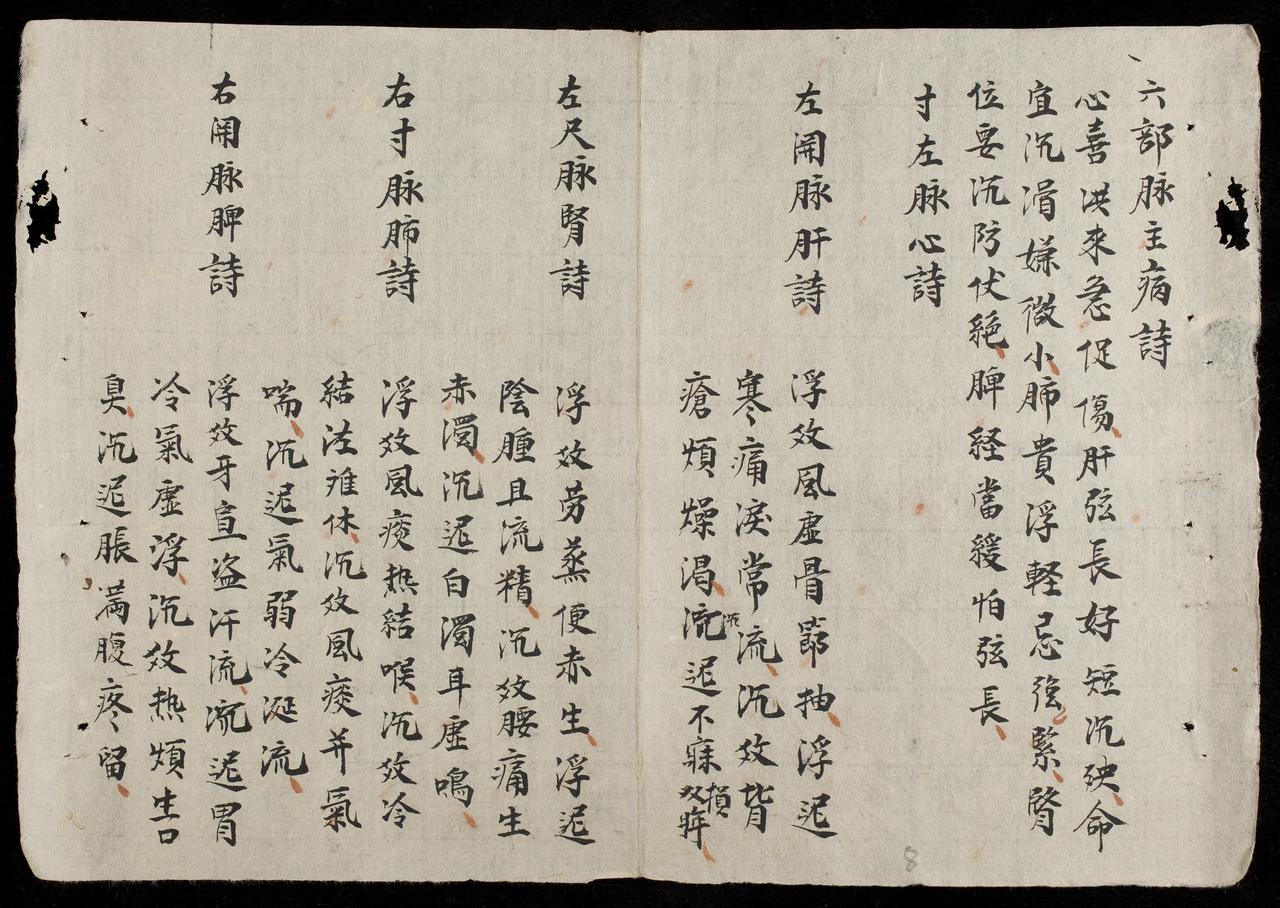 六部脉主病詩
心喜洪來急促傷肝弦長好短沉殃命
宜沉滑嫌微小肺貴浮軽忌弦緊腎
位要沉防伏絕脾経當緩怕弦長
寸左脉心詩
左関脉肝詩
浮效風虚骨節抽浮迟
寒痛淚常流沉效背
瘡煩燥渴流沉迟不寐損双眸
左尺脉腎詩
浮效劳蒸便赤生浮迟
陰腫且流精沉效腰痛生
赤濁沉迟白濁耳虚鳴
右寸脉肺詩
浮效風痰热結喉沉效冷
結法难休沉效風痰并氣
喘沉迟氣弱冷涎流
右関脉脾詩
浮效牙宣盗汗流沉迟胃
冷氣虚浮沉效热煩生口
臭沉迟脹満腹疼留
8